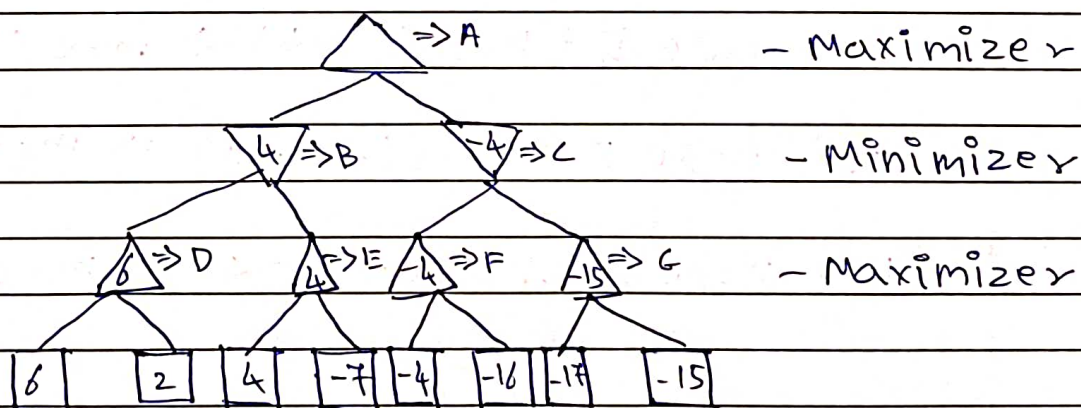 ⇒ A - Maximizer
4 ⇒ B -4 ⇒ C - Minimizer
6 ⇒ D 4 ⇒ E -4 ⇒ F -15 ⇒ G - Maximizer
6 2 4 -7 -4 -16 -17 -15